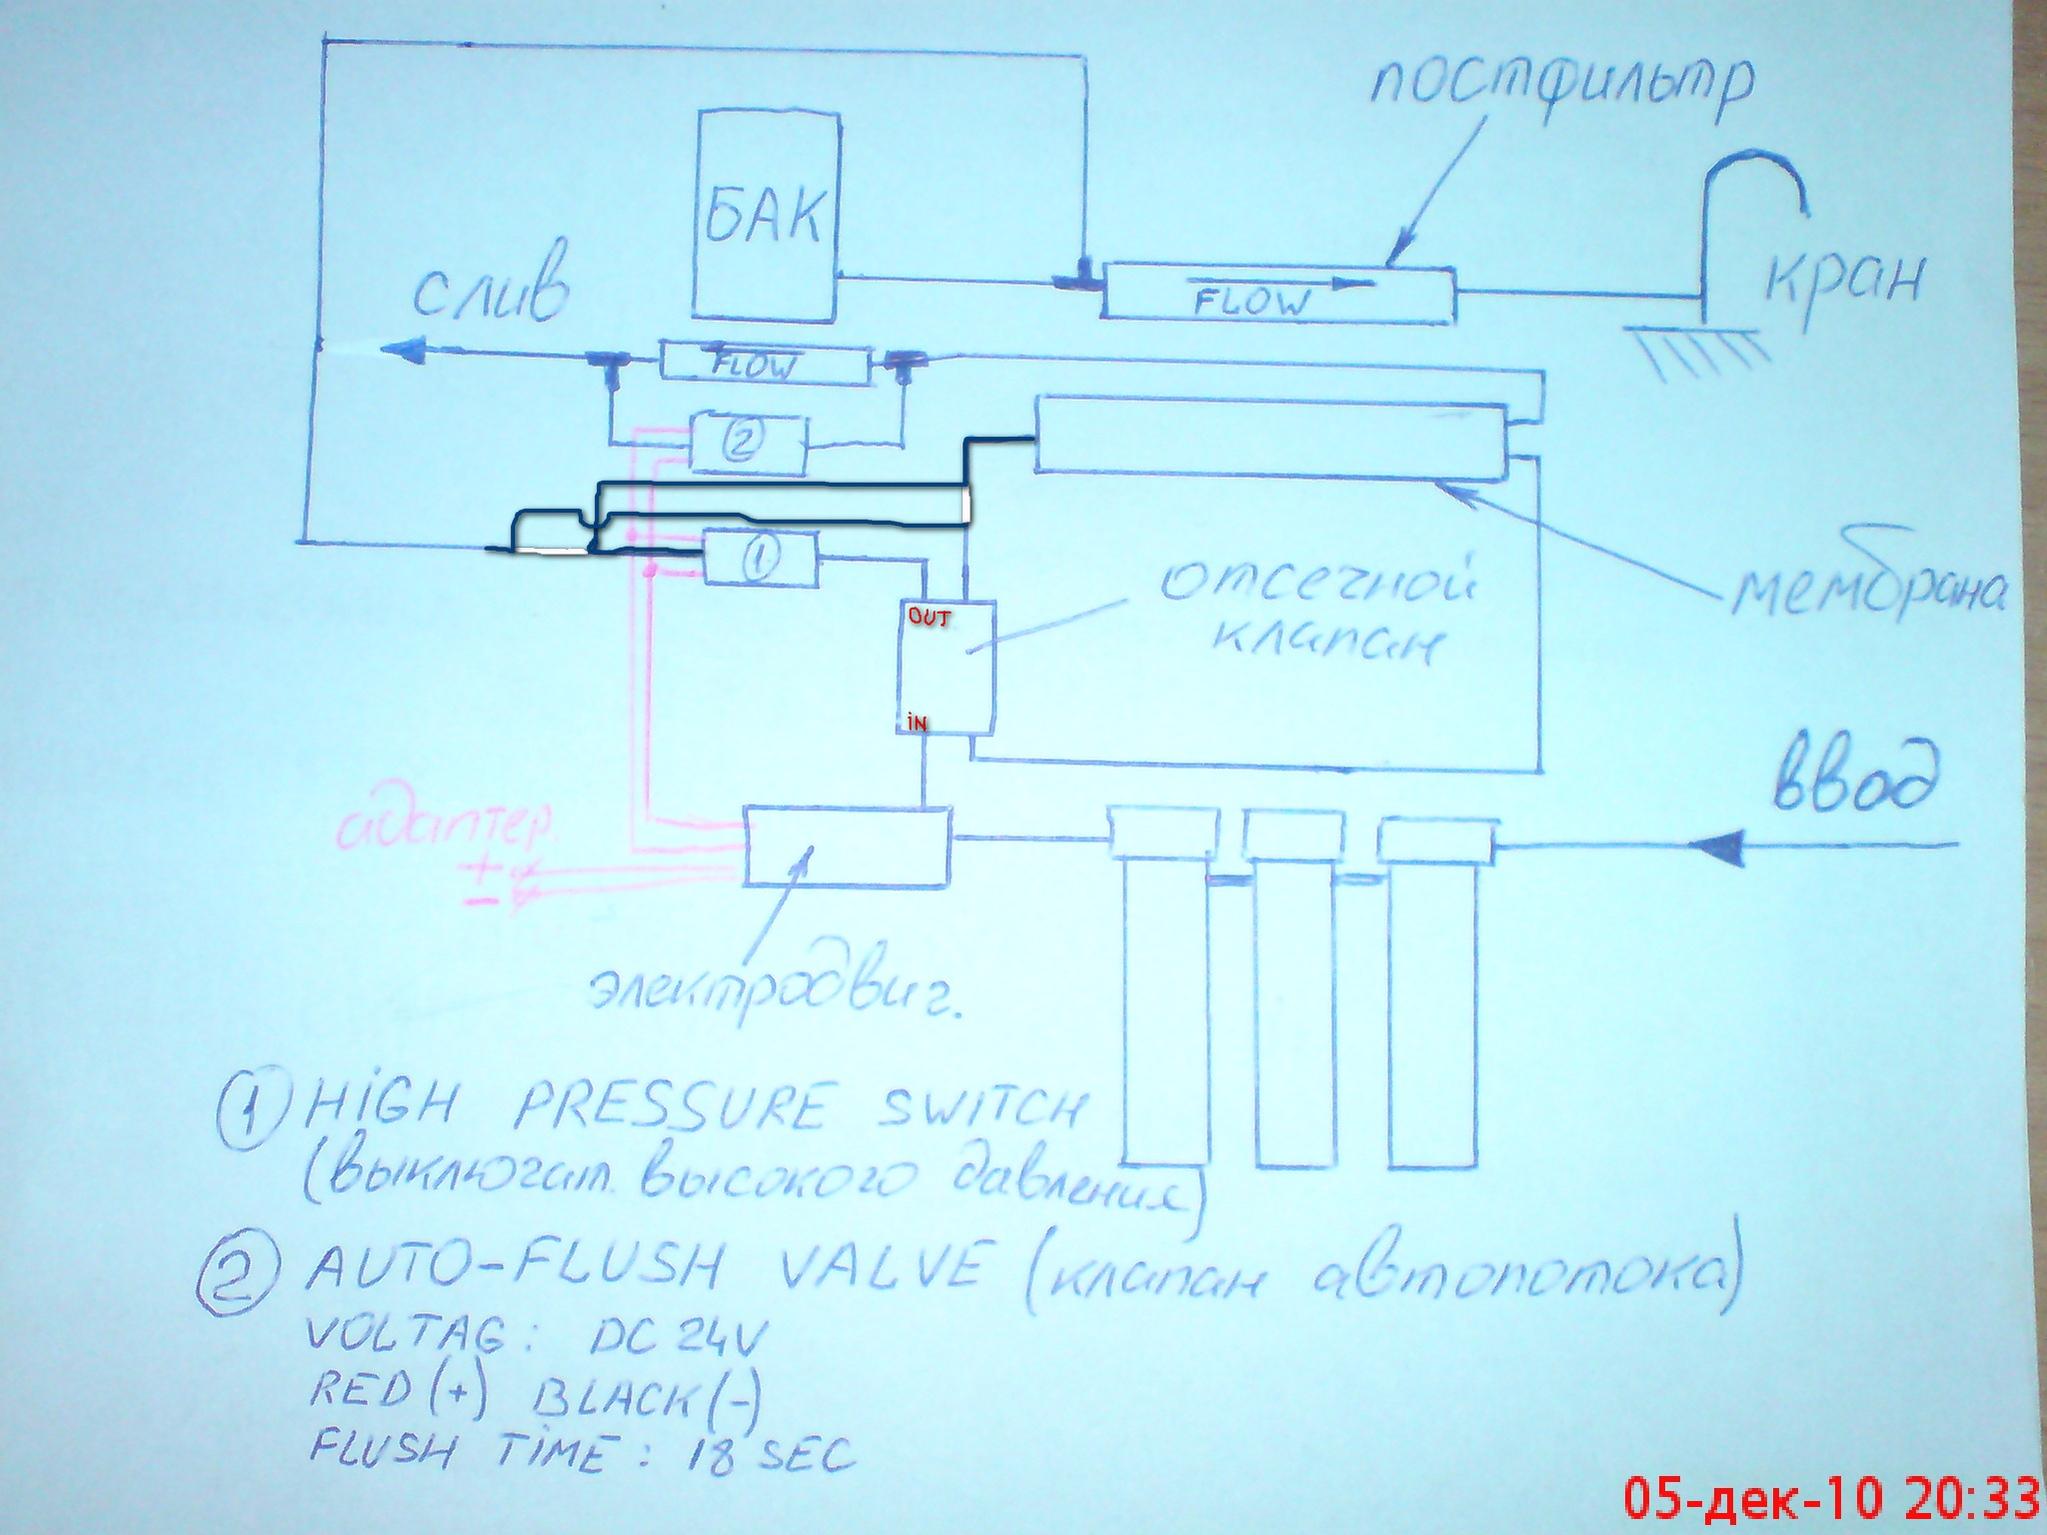 постфильтр
БАК
слив
FLOW
кран
FLOW
2
1
отсечной
клапан
мембрана
OUT
iN
ввод
адаптер.
+
-
электродвиг.
1 HiGH PRESSURE SWITCH
(выключат. высокого давления)
2 AUTO-FLUSH VALVE (клапан автопотока)
VOLTAG: DC 24V
RED(+) BLACK(-)
FLUSH TiME: 18 SEC
05-дек-10 20:33